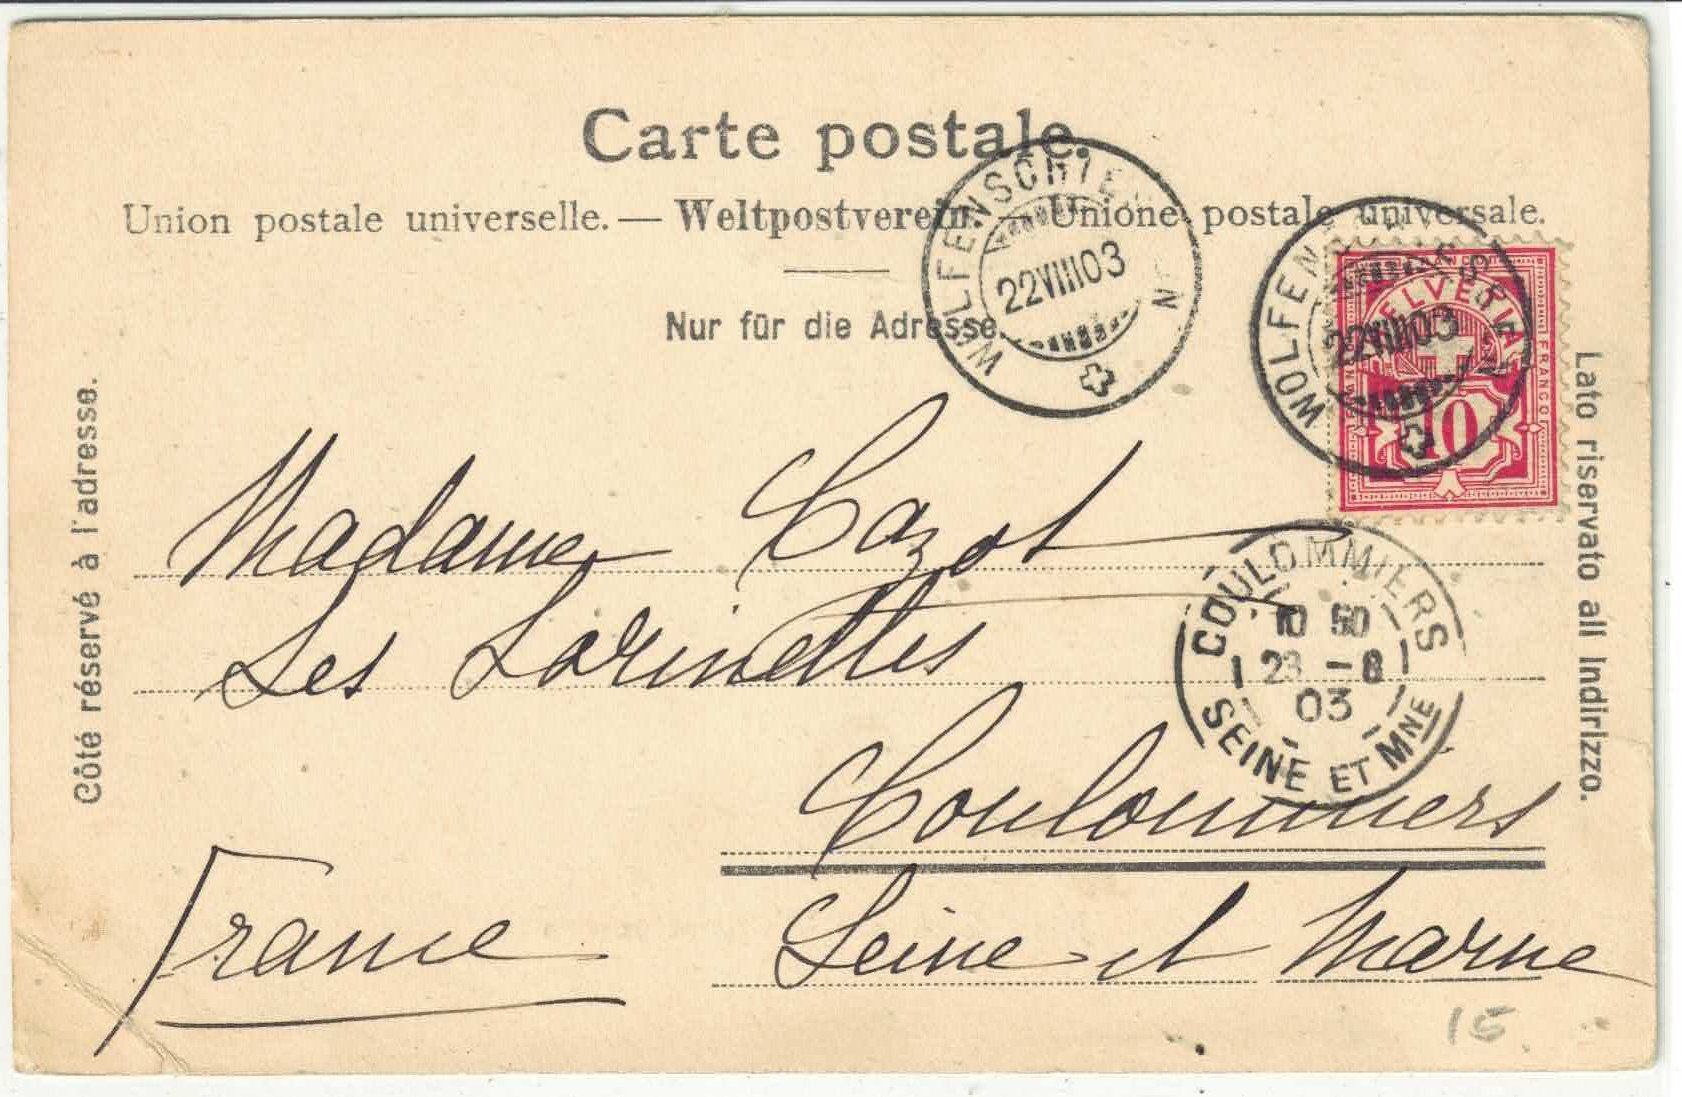 Carte postale.
Union postale universelle. — Weltpostverein. — Unione postale universale.
Nur für die Adresse.
WOLFENSCHIES
22 VIII 03
WOLFENSCHIESSEN
22 VIII 03
HELVETIA
FRANCO
10
Côté réservé à l'adresse.
Lato riservato all Indirizzo.
Madame Cazot
Les Lorinettes
COULOMMIERS
10 50
23 - 8
03
SEINE ET MNE
Coulommiers
France
Seine et Marne
15